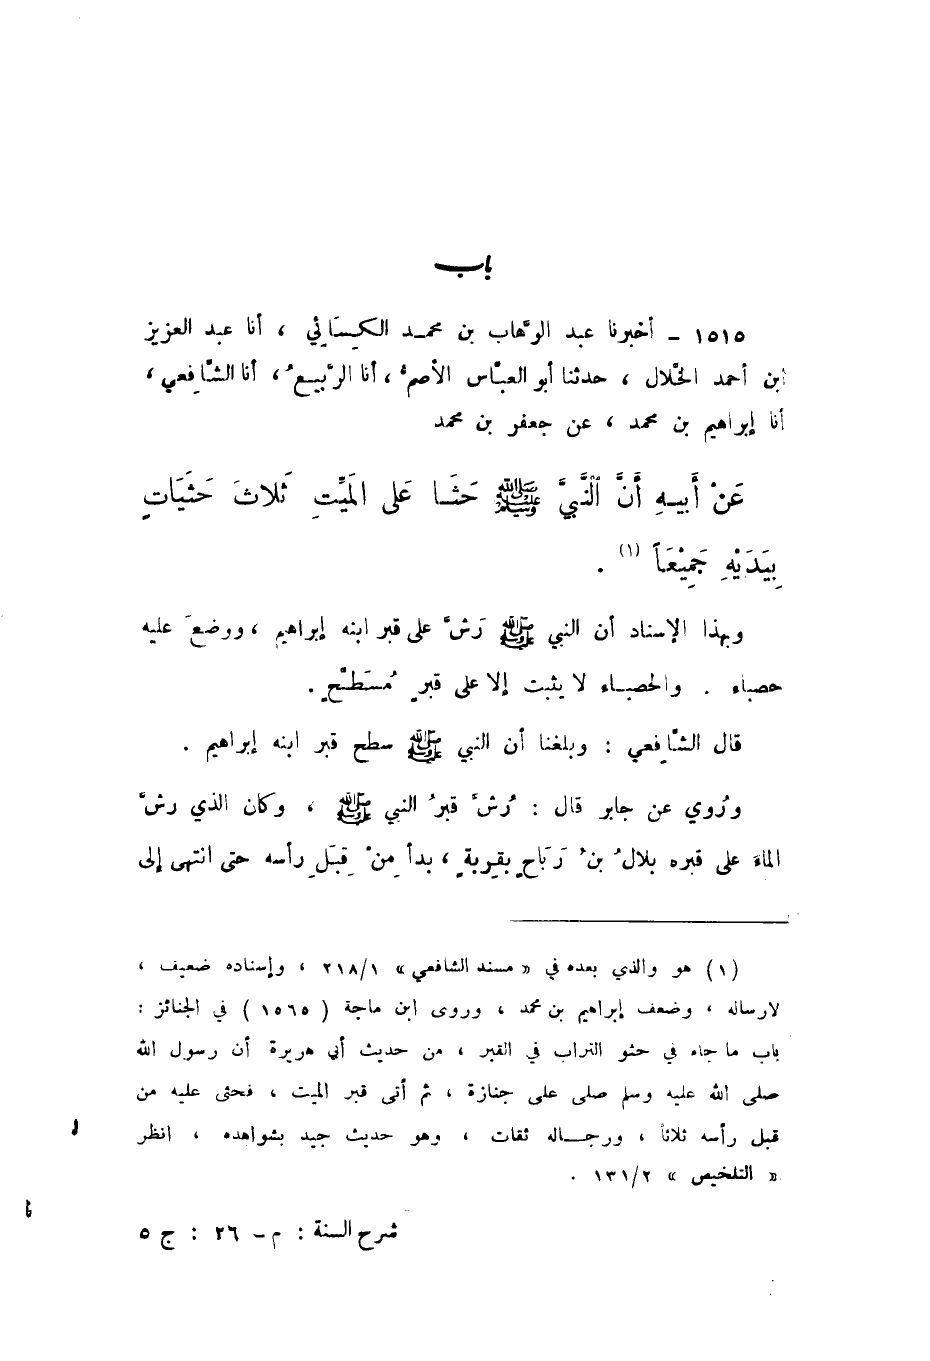 باب
١٥١٥ ـ أخبرنا عبد الوهّاب بن محمـد الكِسَائي ، أنا عبد العزيز
ابن أحمد الخلّال ، حدثنا أبو العبّاس الأصمُّ ، أنا الرّبيعُ ، أنا الشّافِعي ،
أنا إبراهيم بن محمد ، عن جعفر بن محمد
عَنْ أَبيـهِ أَنَّ ٱلنَّبيَّ ﷺ حَثَـا عَلى المَيِّتِ ثَلاثَ حَثَيَاتٍ
بِيَدَيْهِ جَمِيْعَاً (١) .
وبهذا الإسناد أن النبي ﷺ رَشَّ على قبر ابنه إبراهيم ، ووضعَ عليه
حصباء . والحصبـاء لا يثبت إلا على قبرٍ مُسَطَّحٍ .
قال الشّافِعي : وبلغنا أن النبي ﷺ سطح قبر ابنه إبراهيم .
ورُوي عن جابر قال : رُشَّ قبرُ النبي ﷺ ، وكان الذي رشَّ
الماءَ على قبره بلالُ بنُ رَبَاحٍ بقِربةٍ ، بدأ مِنْ قِبَلِ رأسه حتى انتهى إلى
(١) هو والذي بعده في « مسند الشافعي » ٢١٨/١ ، وإسناده ضعيف ،
لارساله ، وضعف إبراهيم بن محمد ، وروى ابن ماجة ( ١٥٦٥ ) في الجنائز :
باب ما جاء في حثو التراب في القبر ، من حديث أبي هريرة أن رسول الله
صلى الله عليه وسلم صلى على جنازة ، ثم أتى قبر الميت ، فحثى عليه من
قبل رأسه ثلاثاً ، ورجـاله ثقات ، وهو حديث جيد بشواهده ، انظر
« التلخيص » ١٣١/٢ .
شرح السنة : م ـ ٢٦ : ج ٥